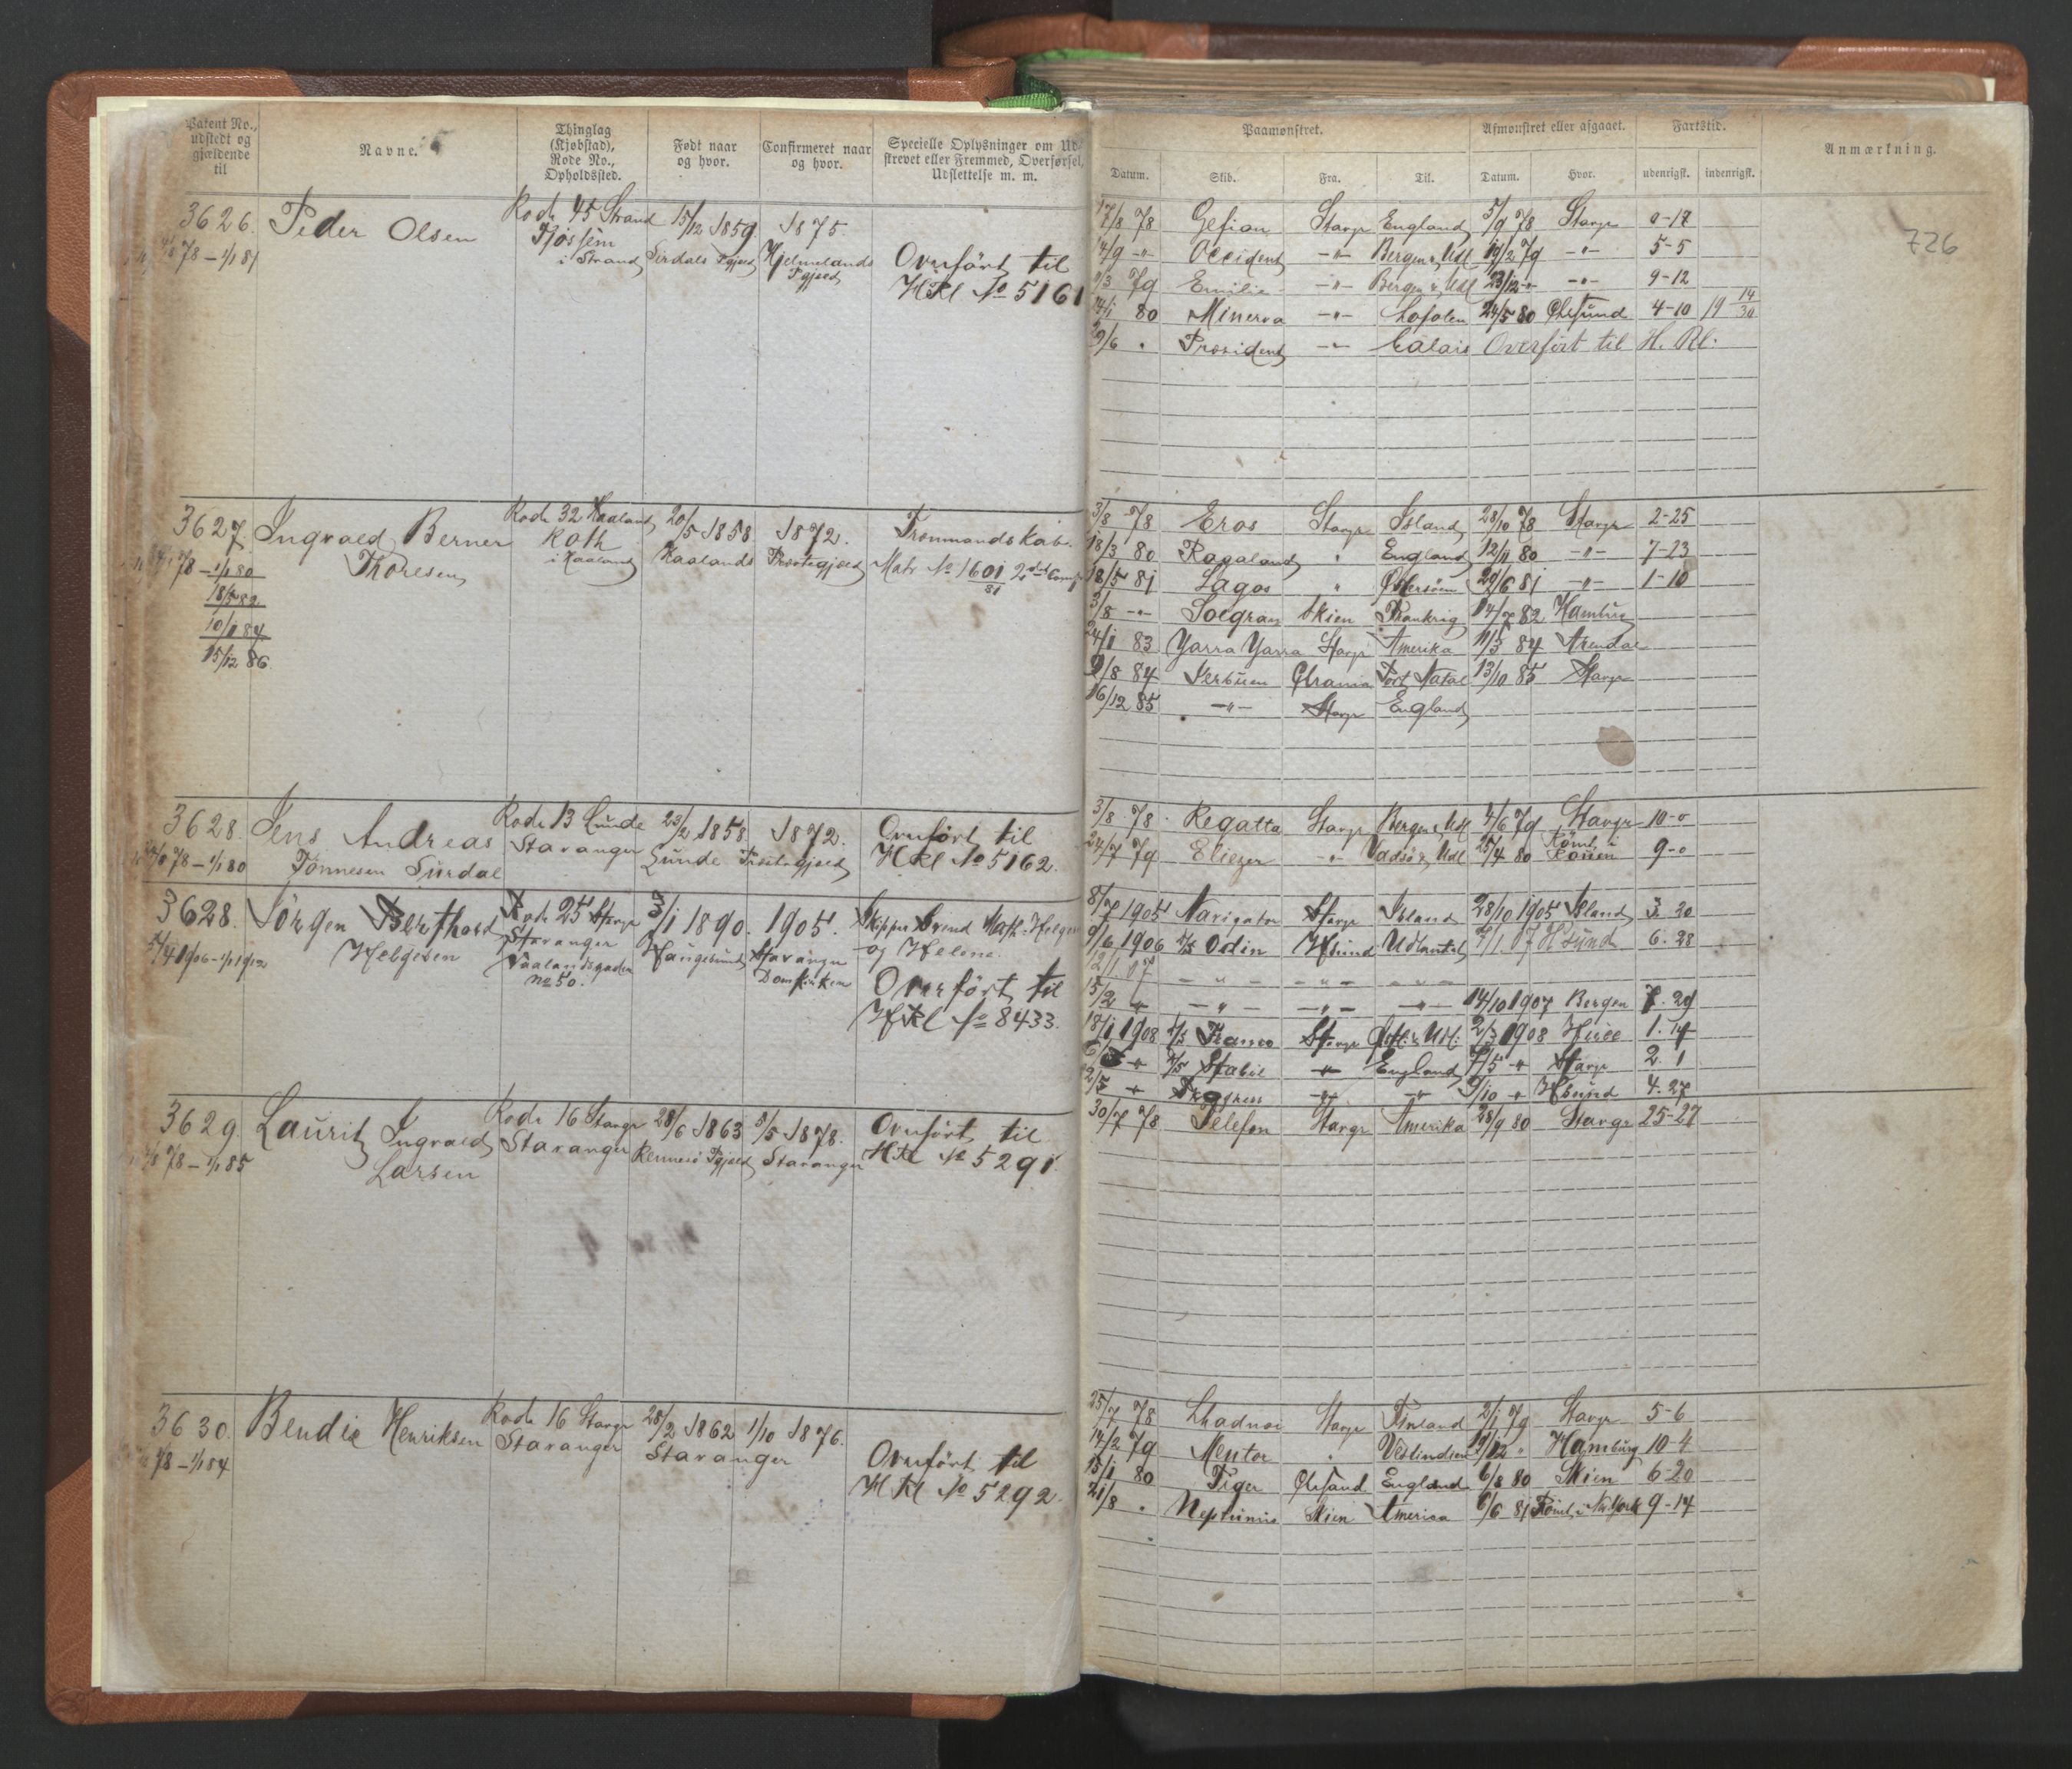 Patent No., udstedt og gjældende til
Navne.
Thinglag (Kjøbstad), Rode No., Opholdssted.
Født naar og hvor.
Confirmeret naar og hvor.
Specielle Oplysninger om Udskrevet eller Fremmed, Overførsel, Udslettelse m. m.
Paamønstret.
Afmønstret eller afgaaet.
Fartstid.
Anmærkning.
Datum. Skib. Fra. Til. Datum. Hvor. udenrigsk. indenrigsk.
726
3626. Peder Olsen Rode 45 Strand 15/12 1859 1875.
78 – 1/1 81 i Strand Pgjeld Hjelmelands Pgjeld
Overført til
HRl No 5161
17/8 78 Gefion Stavgr England 5/9 78 Stavgr 0-17
14/9 -"- Occident -"- Bergen & Udl 19/2 79 -"- 5-5
3 79 Emilie -"- Bergen & Udl 23/12 -"- -"- 9-12
80 Minerva -"- Lofoten 24/5 80 Chrsund 4-10 19 14/30
29/6 " President -"- Calais Overført til H. Rl.
3627. Ingvald Berner Rode 32 Haaland 20/5 1858 1872.
Thoresen Roth i Haaland Haalands Præstegjeld
78 – 1/1 80
18/5 82
10/1 84
15/12 86
Tremandskab.
Matr No 1601 2det Comp
81
3/8 78 Eros Stavgr Island 28/10 78 Stavgr 2-25
18/3 80 Rogaland " England 12/11 80 -"- 7-23
18/5 81 Lagos " Østersøen 29/6 81 -"- 1-10
3/8 -"- Solgran Skien Frankrig 82 Hamburg
24/1 83 Yarra Yarra Stavgr Amerika 11/5 84 Arendal
9/8 84 Chrania Port Natal 13/10 85 Stavgr
16/12 85 -"- Stavgr England
3628. Jens Andreas Rode 13 Lunde 23/2 1858 1872.
Tønnesen Surdal Stavanger Lunde Præstegjeld
78 – 1/1 80
Overført til
HRl No 5162.
3/8 78 Regatta Stavgr Bergen & Udl 4/6 79 Stavgr 10-0
24/7 79 Eliezer -"- Vadsø & Udl 25/4 80 Römt i Rouen 9-0
3628. Jörgen Berthord Rode 25 Stavgr 3/1 1890. 1905.
Helgesen Stavanger Haugesund Stavanger Domkirken
Vaalandsgaden No 50.
1906 – 1/1 1912
Skipper Svend Math. Helgesen
og Helene.
Overført til
HRl No 8433.
8/7 1905 Navigator Stavgr Island 28/10 1905 Island 3. 20
9/6 1906 Odin Hsund Udlandet 7/1. 07 Hsund 6. 28
12/1. 07 -"- -"- -"-
15/2 " -"- -"- -"- 14/10 1907 Bergen 7. 29
18/1 1908 Franco Stavgr & Udl: 2/3 1908 1. 14
-"- Stabil -"- England 7/5 -"- Stavgr 2. 1
2/5 -"- Progress -"- -"- 9/10 -"- Hsund 4. 27
3629. Laurits Ingvald Rode 16 Stavgr 28/6 1863 5/5 1878.
Larsen Stavanger Rennesø Pgjeld Stavanger
78 – 1/1 85
Overført til
HRl No 5291.
30/7 78 Telefon Stavgr Amerika 28/9 80 Stavgr 25-27
3630. Bendix Henriksen Rode 16 Stavgr 28/2 1862 1/10 1876.
Stavanger Stavanger
78 – 1/1 84
Overført til
HRl No 5292.
25/7 78 Stavgr Finland 2/1 79 Stavgr 5-6
14/2 79 Mentor " Vestindien 19/12 " Hamburg 10-4
15/1 80 Tiger Chrsand England 6/8 80 Skien 6-20
21/8 " Neptunus Skien Amerika 6/6 81 Römt i New York 9-14